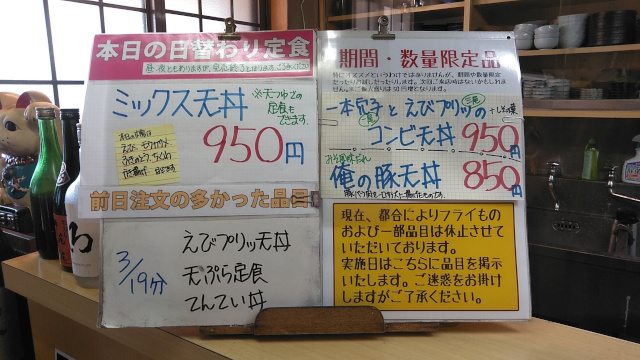 本日の日替わり定食
昼・夜ともありますが、完売終了となります。ご了承ください
ミックス天丼
※天つゆでの
定食も
できます。
950円
本日の内容は
えび
前日注文の多かった品目
3/19分
えびプリッ天丼
天ぷら定食
てんてい丼
期間・数量限定品
特にオススメというわけではありませんが、期間や数量限定
一本穴子とえびプリッの
コンビ天丼 950円
みそ風味だれ
俺の豚天丼 850円
現在、都合によりフライもの
および一部品目は休止させて
いただいております。
実施日はこちらに品目を掲示
いたします。ご迷惑をお掛け
しますがご了承ください。